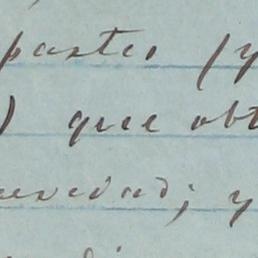 partes (y
) que obt
uridad; y